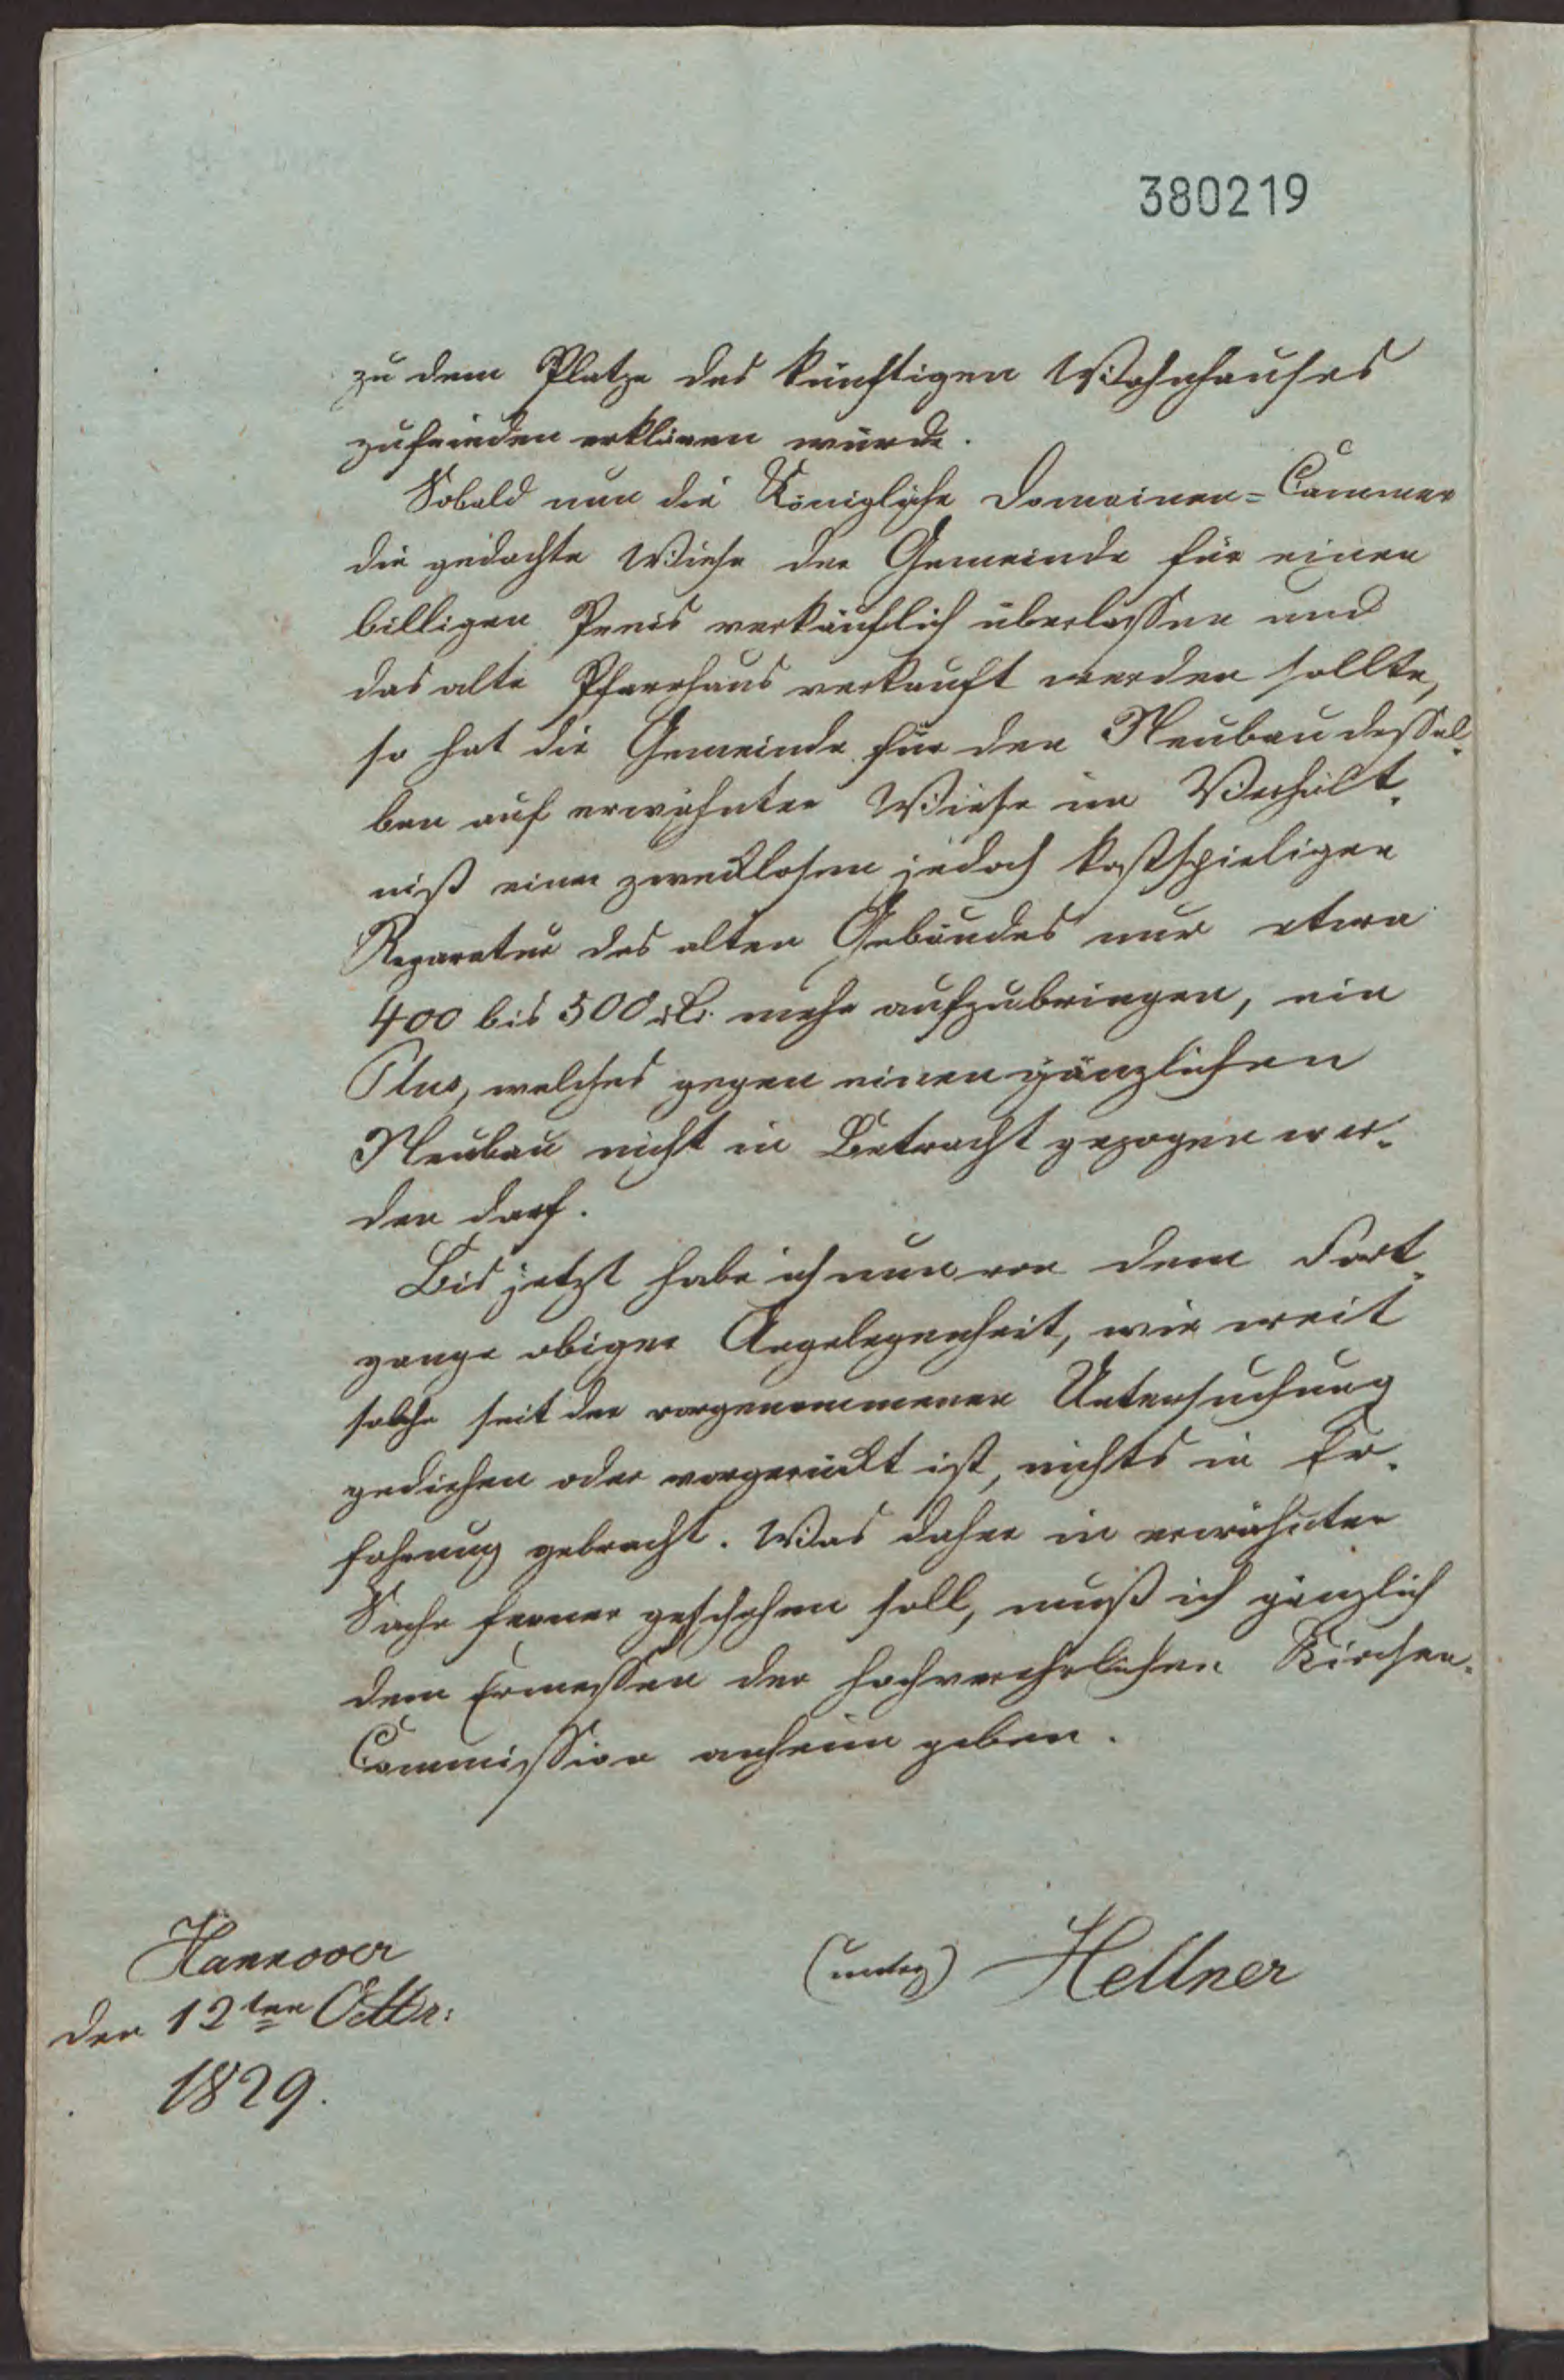 380219
zu dem Platze des künftigen Wohnhauses
zufrieden erklären würde.
Sobald nun die Königliche Domainen=Cammer
die gedachte Wiese der Gemeinde für einen
billigen Preis verkäuflich überlassen und
das alte Pfarrhaus verkauft werden sollte,
so hat die Gemeinde für den Neubau dessel-
ben auf erwähnter Wiese im Verhält-
niß einer zwecklosen jedoch kostspieligen
Reparatur des alten Gebäudes nur etwa
400 bis 500 rt. mehr aufzubringen, ein
Plus, welches gegen einen gänzlichen
Neubau nicht in Betracht gezogen wer-
den darf.
Bis jetzt habe ich nun von dem Fort-
gange obiger Angelegenheit, wie weit
solche seit der vorgenommenen Untersuchung
gediehen oder vorgerückt ist, nichts in Er-
fahrung gebracht. Was daher in erwähnter
Sache ferner geschehen soll, muß ich gänzlich
dem Ermessen der hochverehrlichen Kirchen-
Commission anheim geben.
Hannover
den 12ten Octbr:
1829.
(unterz) Hellner